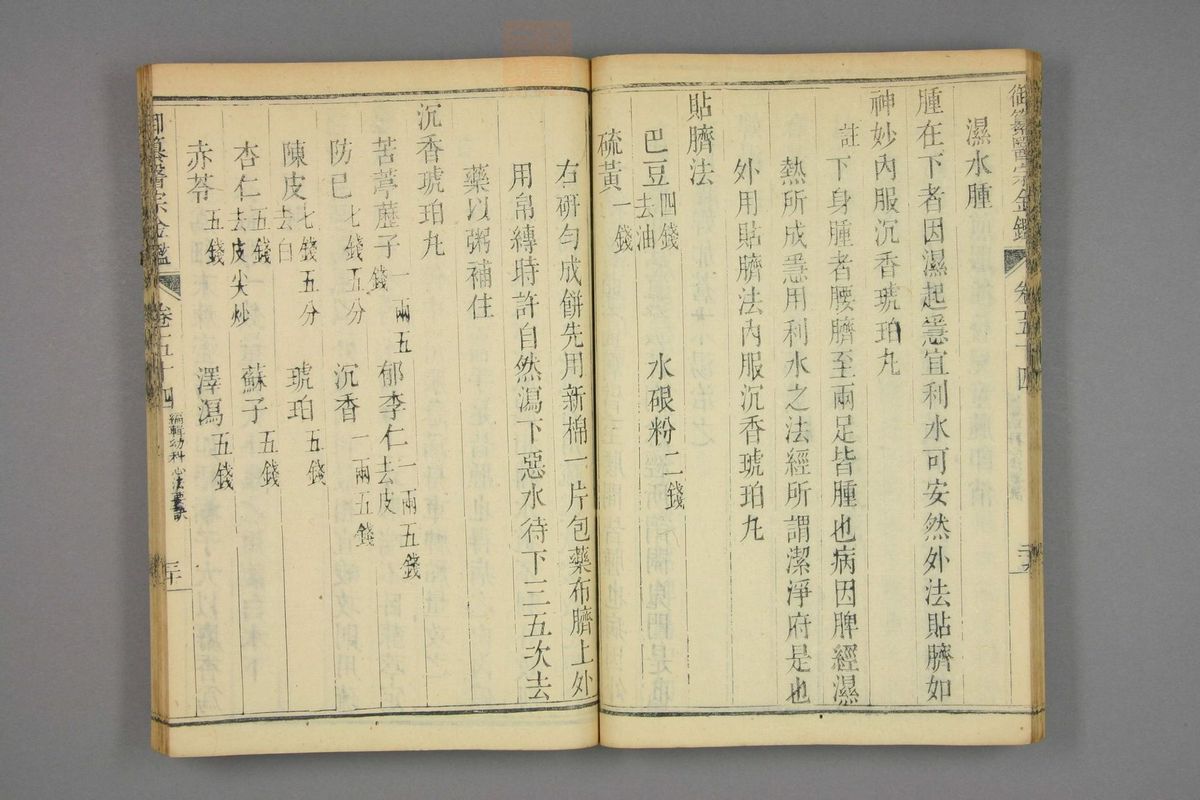 御纂醫宗金鑑 卷五十四
濕水腫
腫在下者因濕起㴔宜利水可安然外法貼臍如
神妙內服沉香琥珀丸
註下身腫者腰臍至兩足皆腫也病因脾經濕
熱所成㴔用利水之法經所謂潔淨府是也
外用貼臍法內服沉香琥珀丸
貼臍法
巴豆四錢去油 水硍粉二錢
硫黃一錢
右研勻成餅先用新棉一片包藥布臍上外
用帛縳時許自然瀉下惡水待下三五次去
藥以粥補住
沉香琥珀丸
苦葶藶子一兩五錢 郁李仁去皮一兩五錢
防已七錢五分 沉香一兩五錢
陳皮七錢五分去白 琥珀五錢
杏仁五錢去皮尖炒 蘇子五錢
赤苓五錢 澤瀉五錢
御纂醫宗金鑑 卷五十四 編輯幼科心法要訣 三十